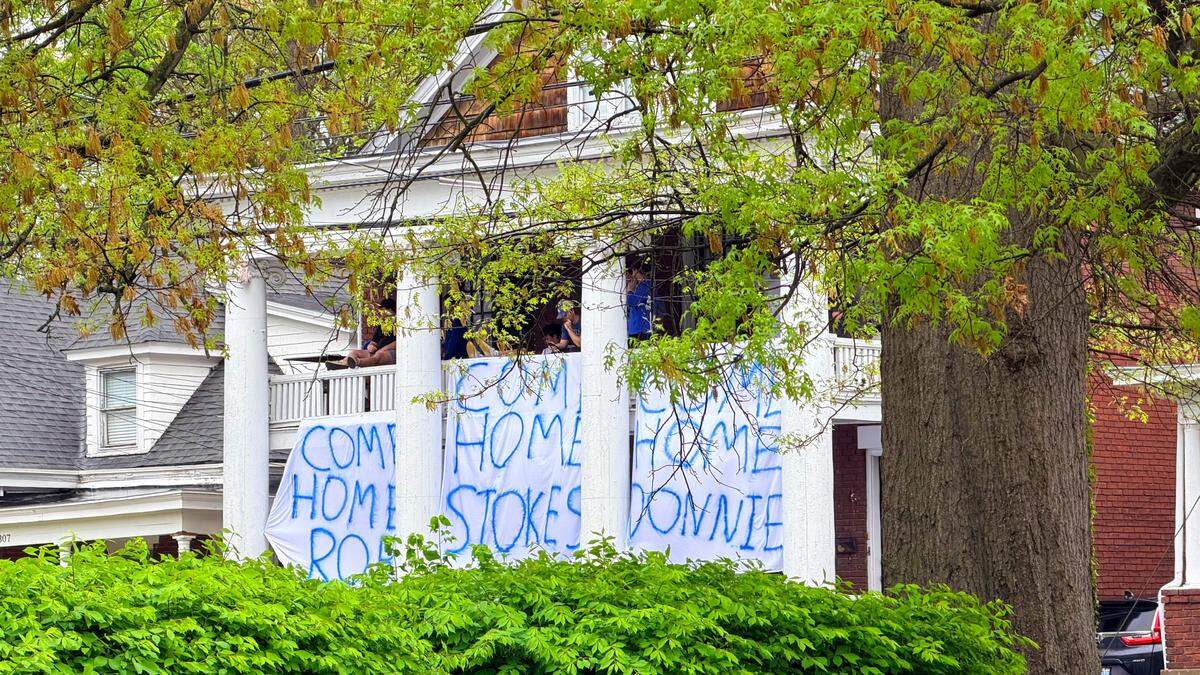 COME
HOME
ROB
COME
HOME
STOKES
COME
HOME
DONNIE